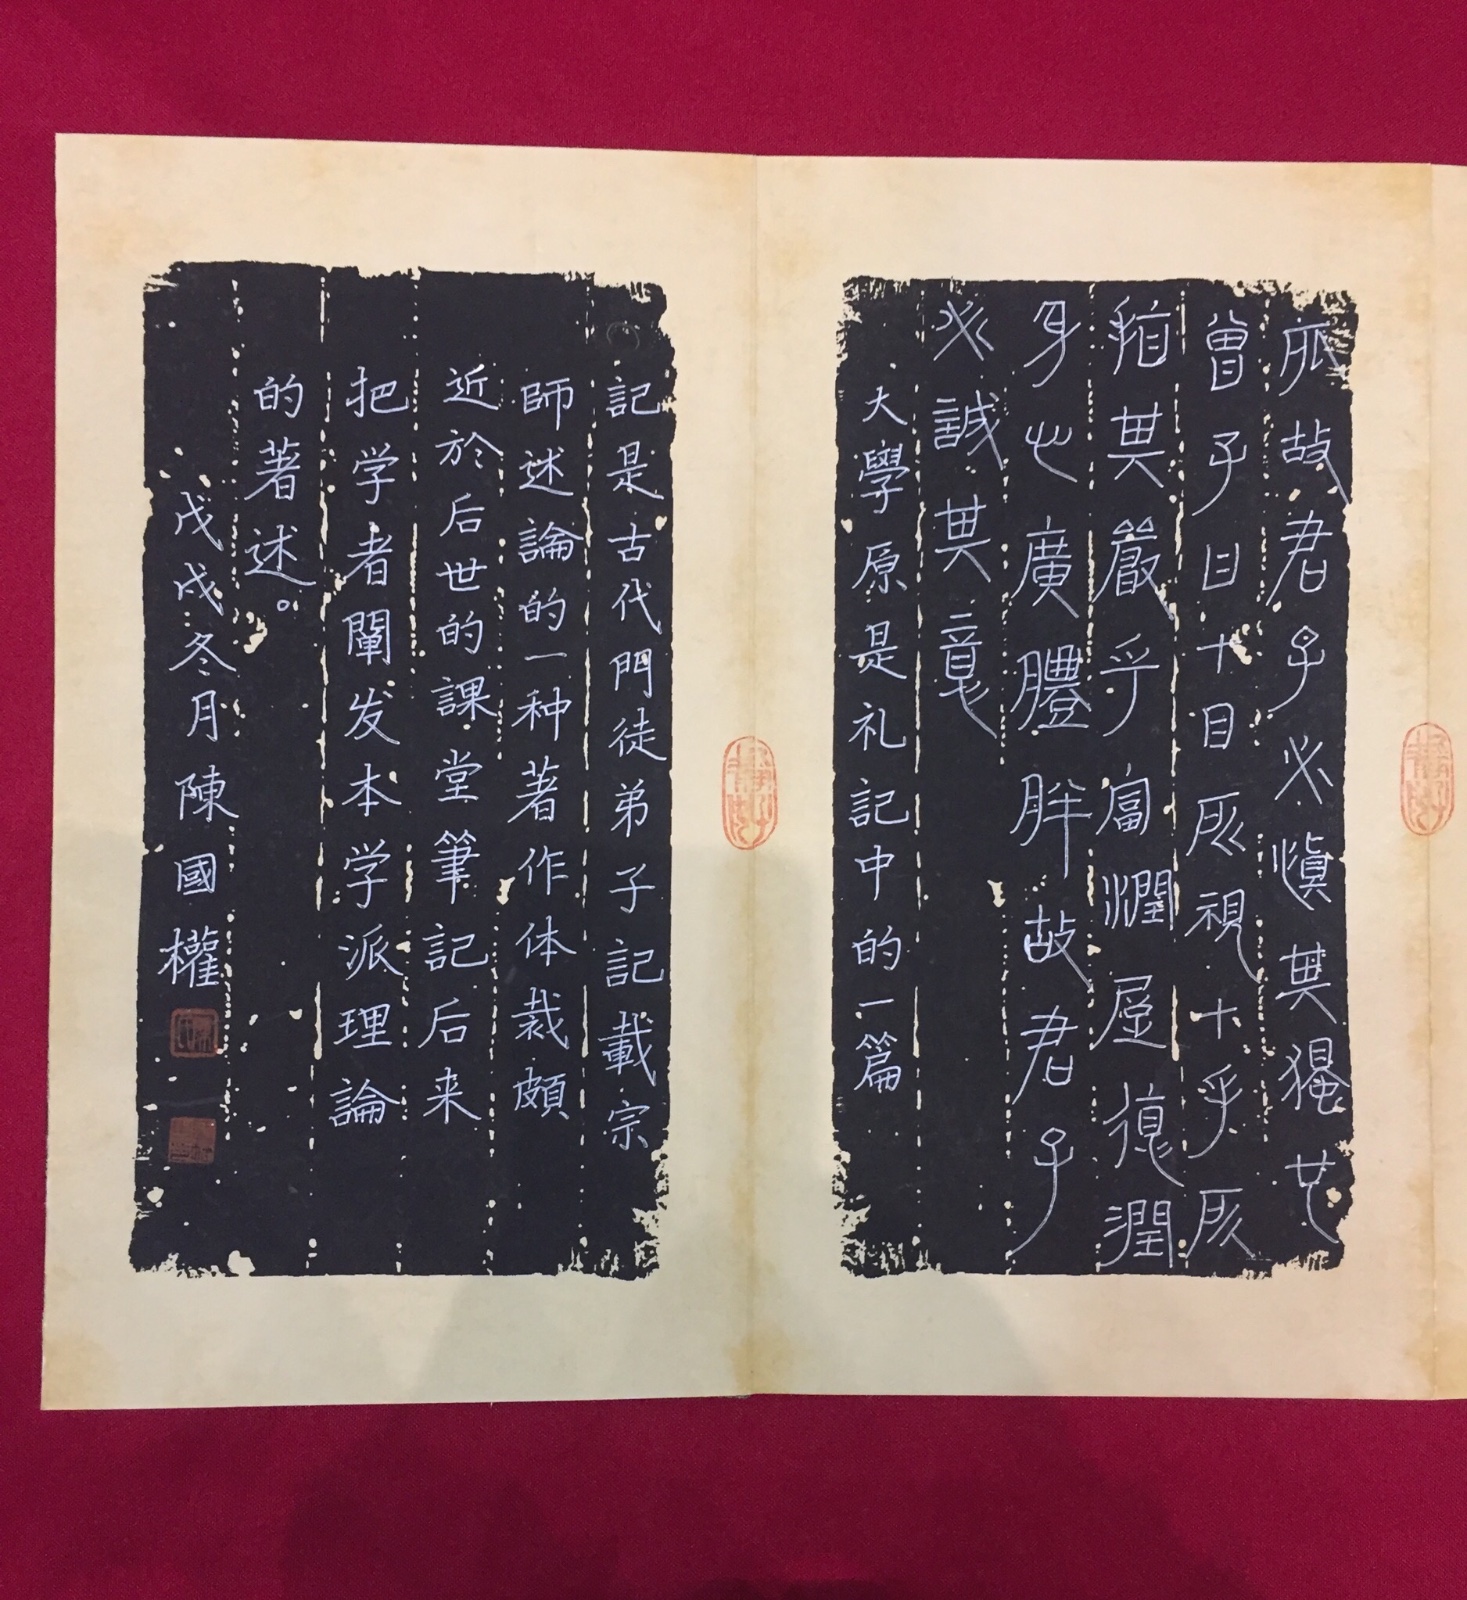 外故君子必慎其獨也
曾子曰十目所視十手所
指其嚴乎富潤屋德潤
身心廣體胖故君子
必誠其意
大學原是礼記中的一篇
記是古代門徒弟子記載宗
師述論的一种著作体裁頗
近於后世的課堂筆記后来
把学者闡发本学派理論
的著述。
戊戌冬月陳國權